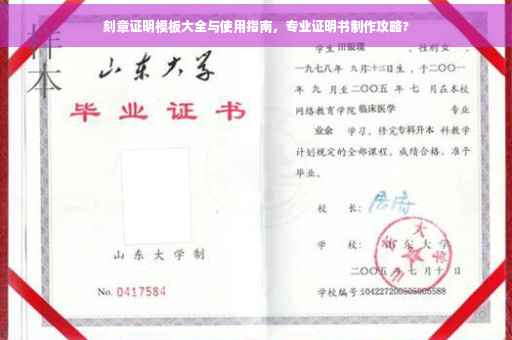 刻章证明模板大全与使用指南，专业证明书制作攻略?
样本
山东大学
毕业证书
山东大学制
No. 0417584
学生
性别女，
一九七八年 九月十三日生，于二〇〇一
年 九 月至二〇〇五 年 七 月在本校
网络教育学院临床医学 专业
业余 学习，修完专科升本 科教学
计划规定的全部课程，成绩合格，准予
毕业。
校 长：
学 校：山东大学
二〇〇五 年 七 月 十 日
学校编号:104227200505005588